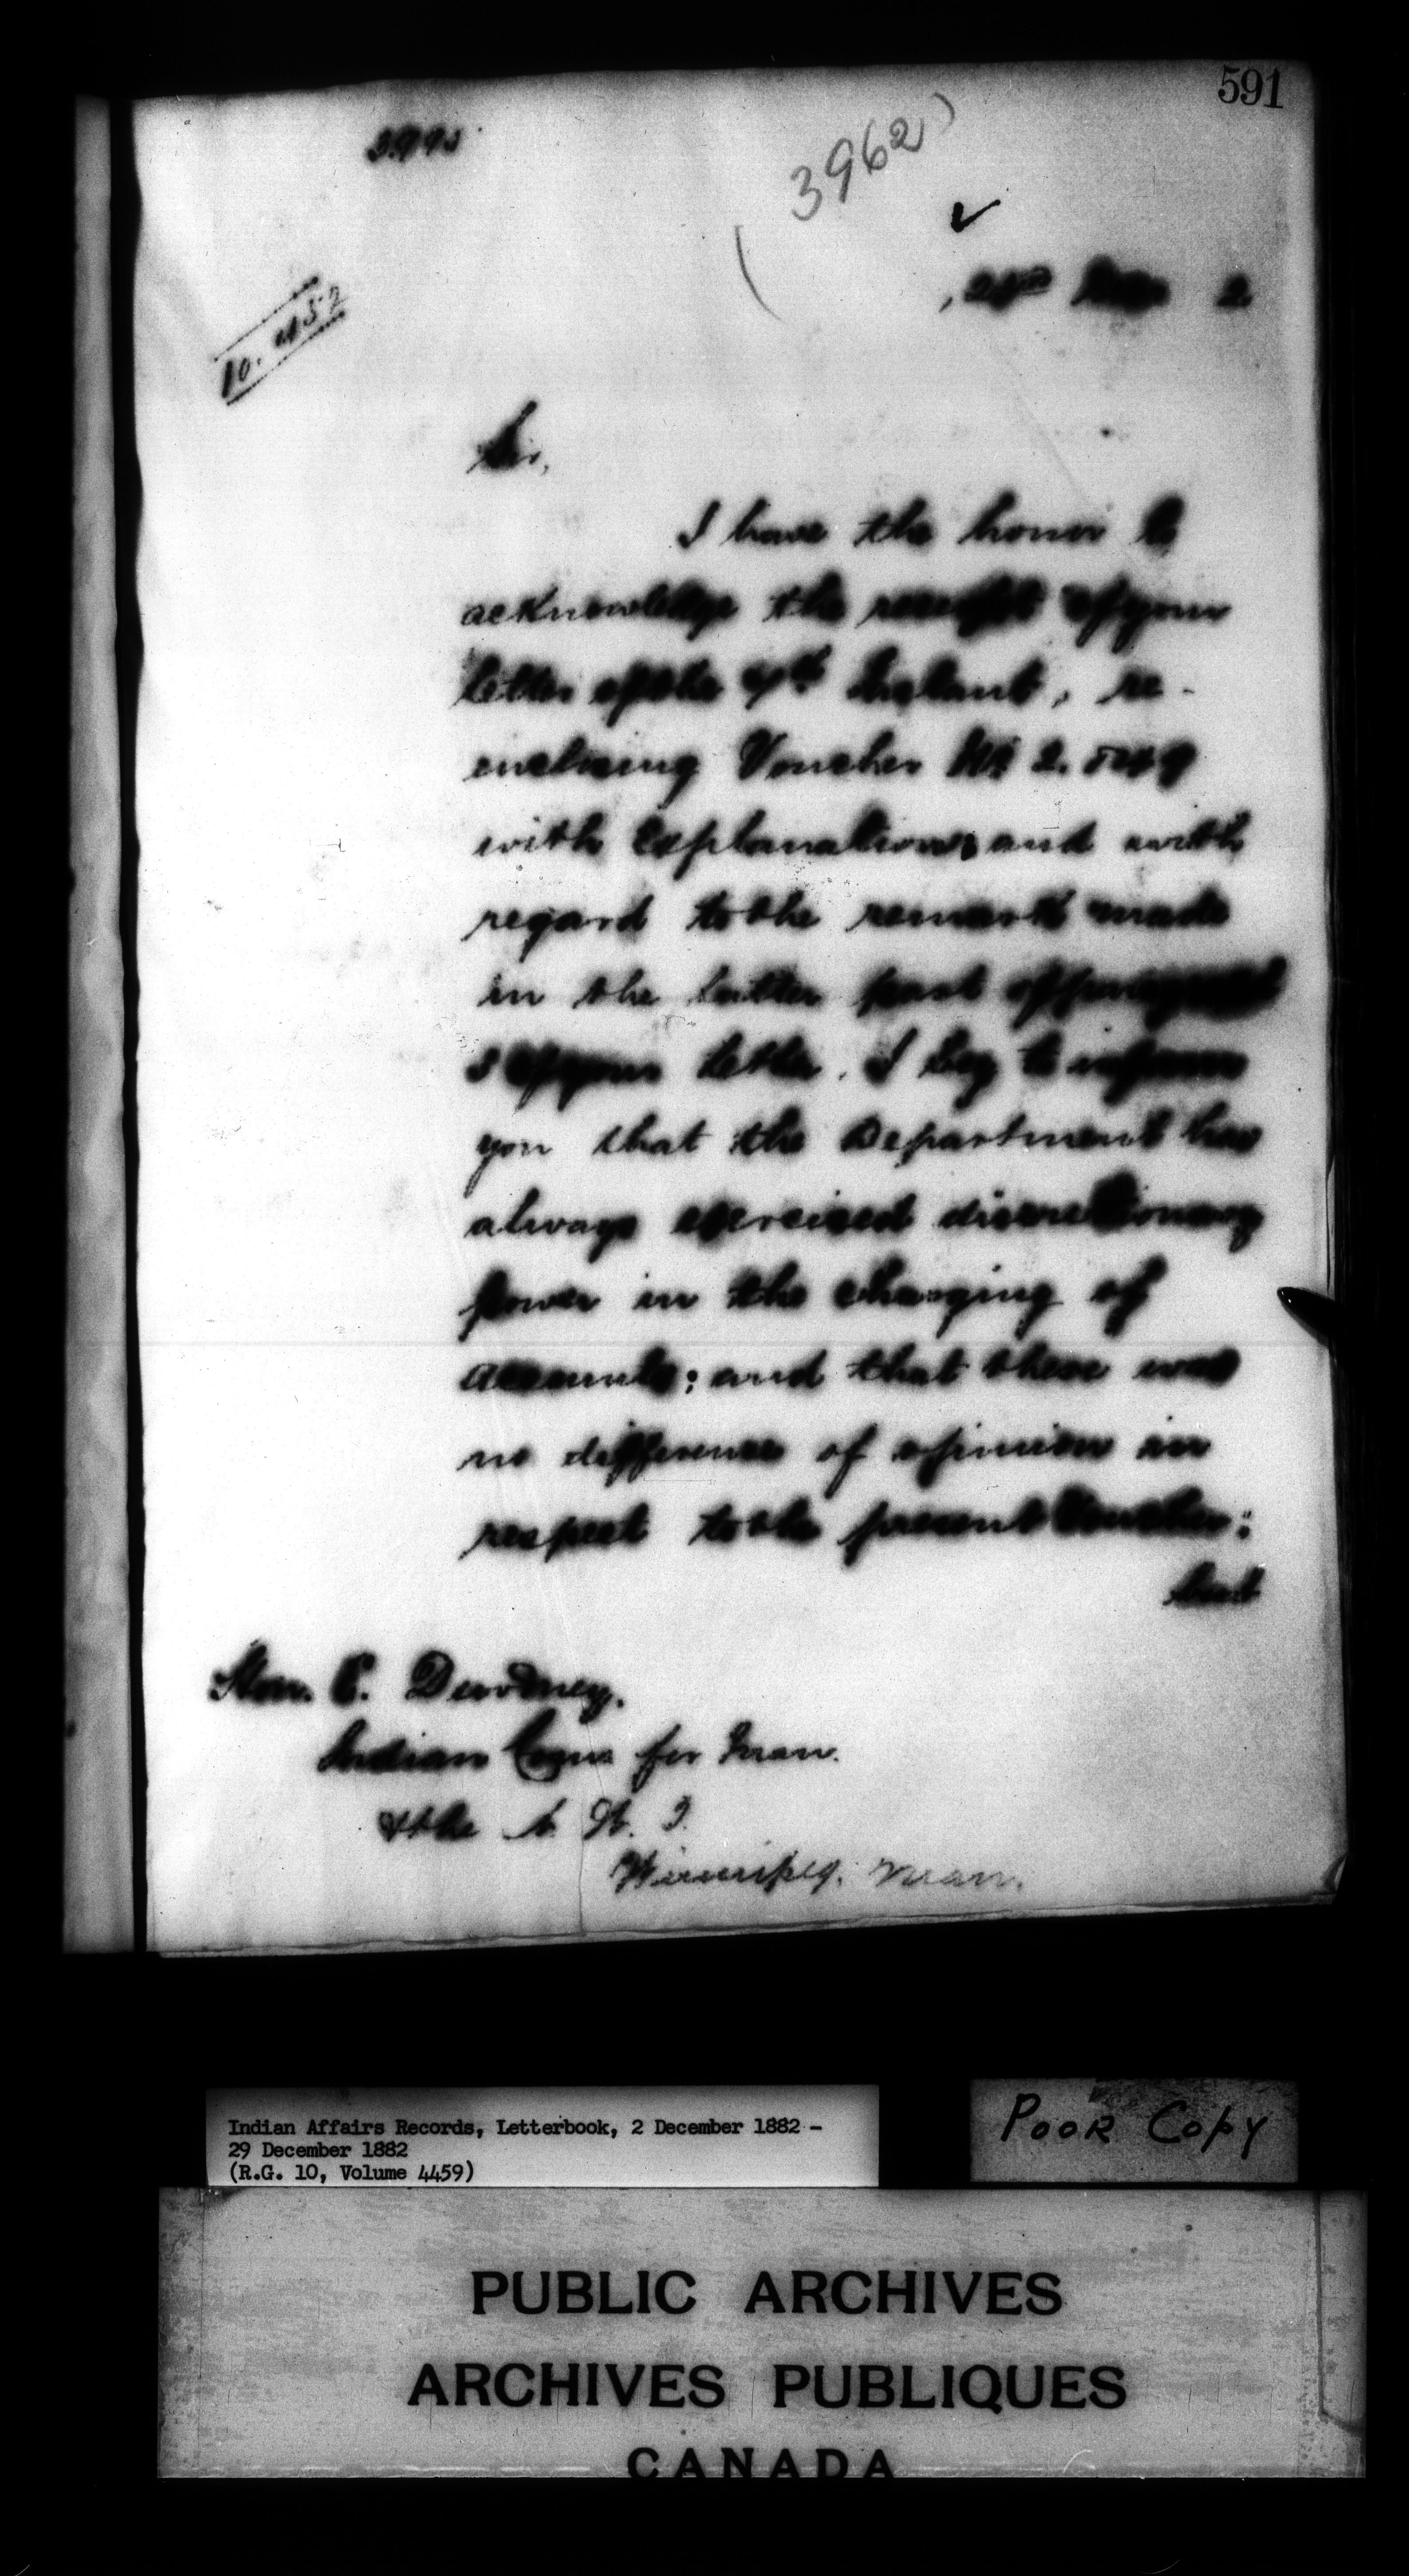 591
(3962)
Sir,
I have the honor to
acknowledge the receipt of your
letter of the Instant, re-
enclosing Voucher No 2.
with explanations and with
regard to the remark made
in the latter part of
of your letter. I beg to inform
you that the Department has
always exercised discretionary
power in the charging of
accounts; and that there was
no difference of opinion in
respect to the present Voucher;
but
Hon. E. Dewdney,
Indian Comr for Man.
& the N. W. T.
Winnipeg. Man.
Indian Affairs Records, Letterbook, 2 December 1882 -
29 December 1882
(R.G. 10, Volume 4459)
Poor Copy
PUBLIC ARCHIVES
ARCHIVES PUBLIQUES
CANADA